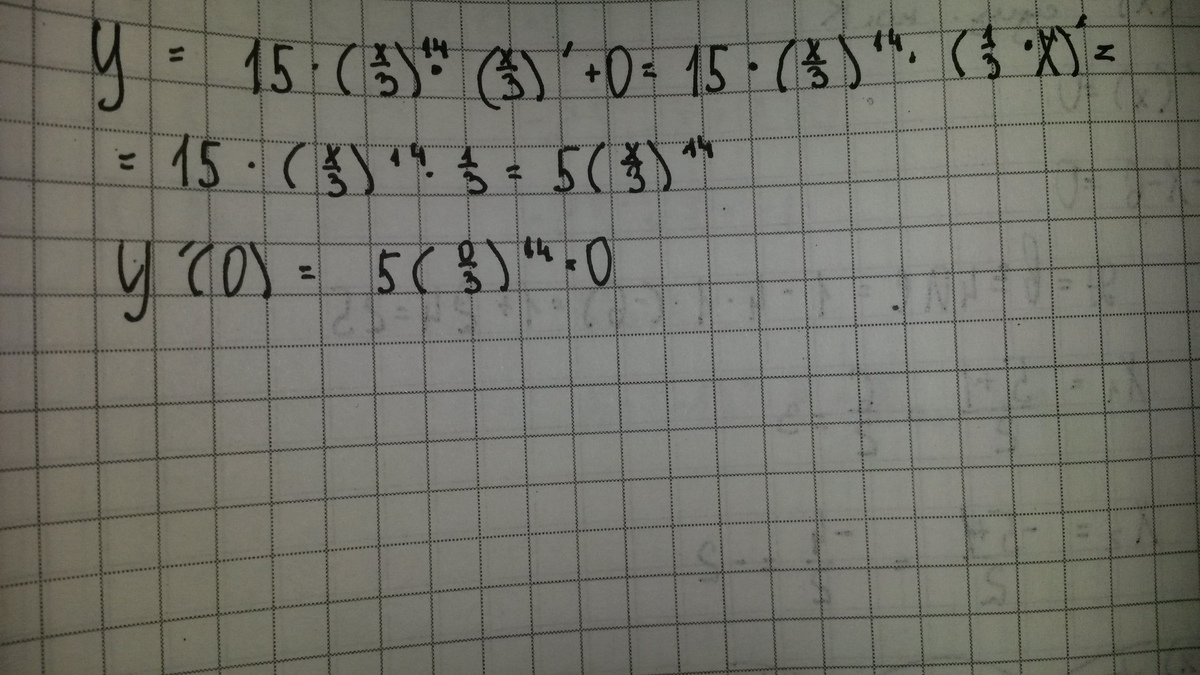 y = 15·(x/3)^14·(x/3)' + 0 = 15·(x/3)^14·(1/3·x)' =
= 15·(x/3)^14·1/3 = 5(x/3)^14
y'(0) = 5(0/3)^14 = 0